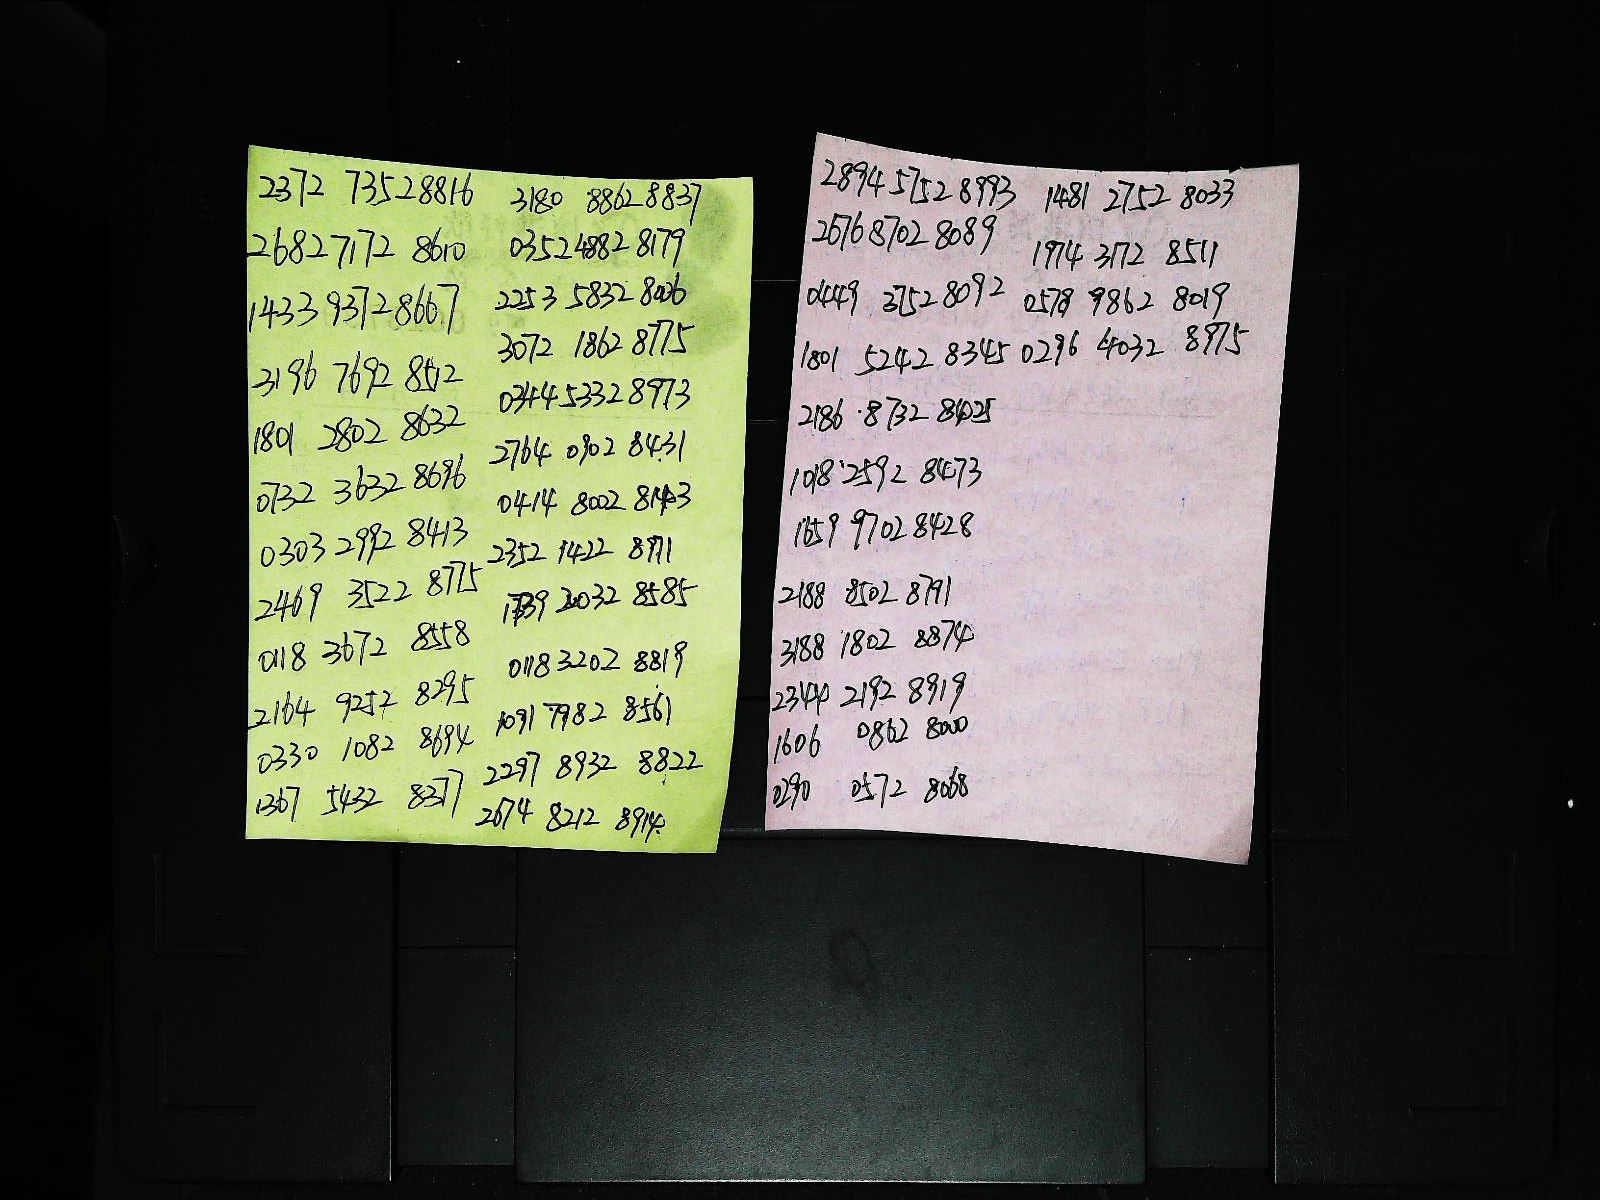 2372 7352 8816
2682 7172 8610
1433 9372 8667
3196 7692 8512
1801 2802 8632
0732 3632 8696
0303 2992 8413
2469 3522 8775
0118 3672 8558
2164 9252 8295
0330 1082 8694
1367 5432 8377
3180 8862 8837
0352 4882 8179
2253 5832
3072 1862 8775
0344 5332 8973
2764 0902 8431
0414 8002 8143
2352 1422 8971
1739 2032 8585
0118 3202 8819
1091 7982 8561
2297 8932 8822
2674 8212 8914
2894 5752 8993
2676 8702 8089
0449 3752 8092
1801 5242 8345
2186 8732 8425
1018 2592 8473
1659 9702 8428
2188 8502 8791
3188 1802 8874
2344 2192 8919
1606 0862 8000
0290 0572 8068
1481 2752 8033
1974 3172 8511
0578 9862 8019
0296 4032 8975